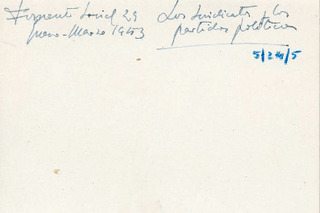 Fomento Social 29
Enero-Marzo 1953
Los sindicatos y los
partidos políticos
5/24/5